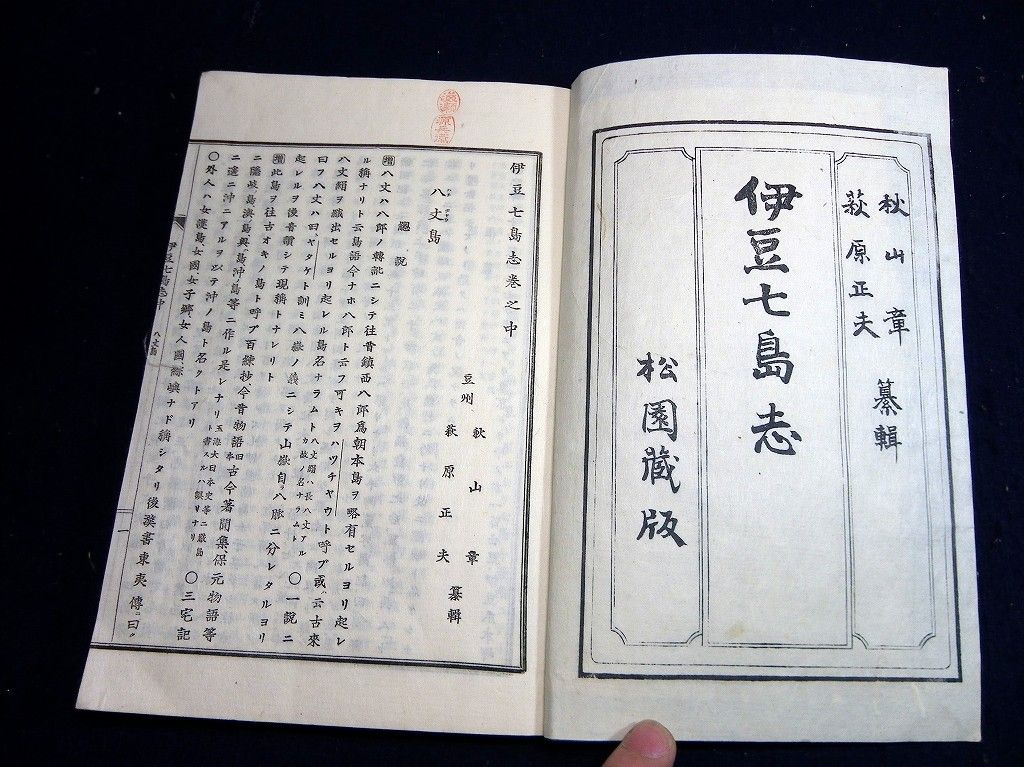 秋山章
萩原正夫
纂輯
伊豆七島志
松園蔵版
伊豆七島志巻之中
豆州
秋山章
萩原正夫
纂輯
八丈島
總説
増八丈ハ八郎ノ轉訛ニシテ往昔鎮西八郎爲朝本島ヲ略有セルヨリ起レ
ル稱ナリト云島語今ナホ八郎ト云フ可キヲハツチヤウト呼ブ或云古來
八丈絹ヲ織出セルヨリ起レル島名ナラムト八丈絹ハ長八丈アルカ故ノ名ナラムト〇一説ニ
曰フ八丈ハ曰ヤタケト訓ミ八嶽ノ義ニシテ山嶽自ラ八脈ニ分レタルヨリ
起レルヲ後音讀シテ現稱トナレリト
増此島ヲ往古オキノ島ト呼ブ百練抄今昔物語古今著聞集保元物語等
ニ隱岐島澳ノ島興ノ島沖ノ島等ニ作ル是レナリ
ニ遠ニ沖ニアルヲ以テ沖ノ島ト名クトアリ
〇三宅記
〇外人ハ女護島女國女子郷女人國ナド稱シタリ後漢書東夷傳ニ曰ク
伊豆七島志中
八丈島